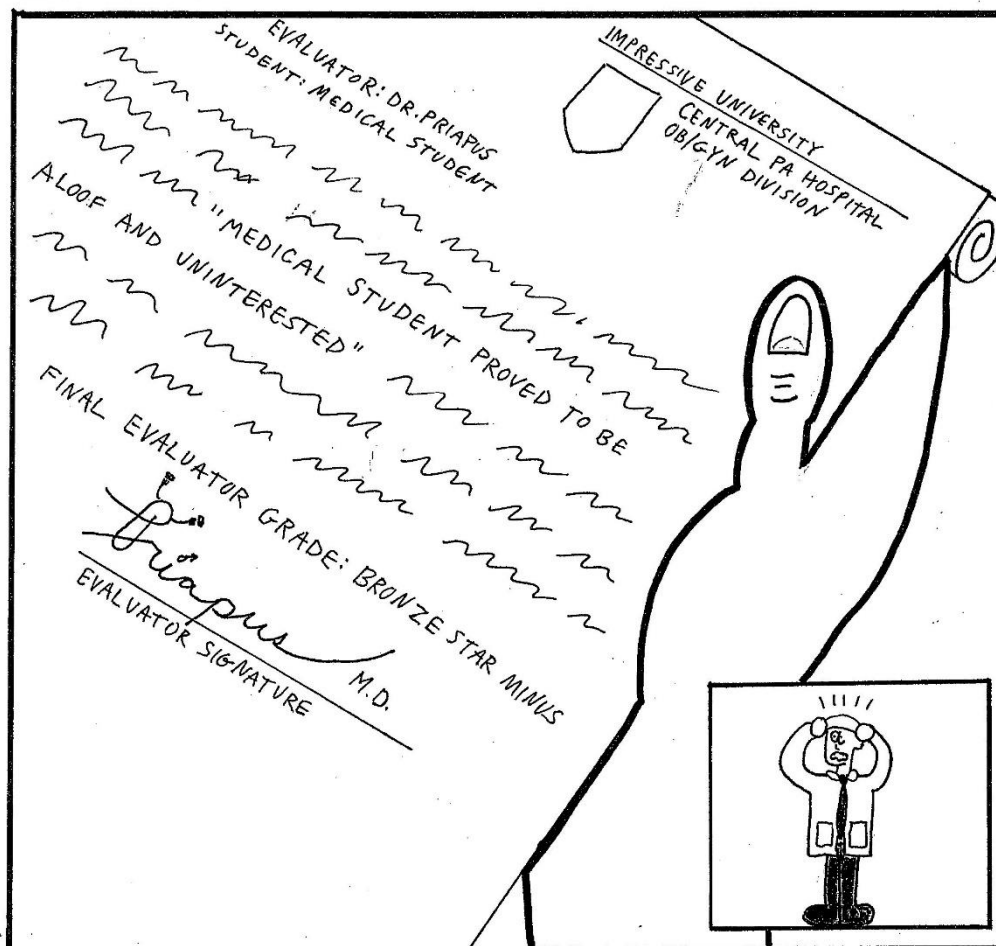 IMPRESSIVE UNIVERSITY
CENTRAL PA HOSPITAL
OB/GYN DIVISION
EVALUATOR: DR. PRIAPUS
STUDENT: MEDICAL STUDENT
"MEDICAL STUDENT PROVED TO BE
ALOOF AND UNINTERESTED"
FINAL EVALUATOR GRADE: BRONZE STAR MINUS
Priapus M.D.
EVALUATOR SIGNATURE